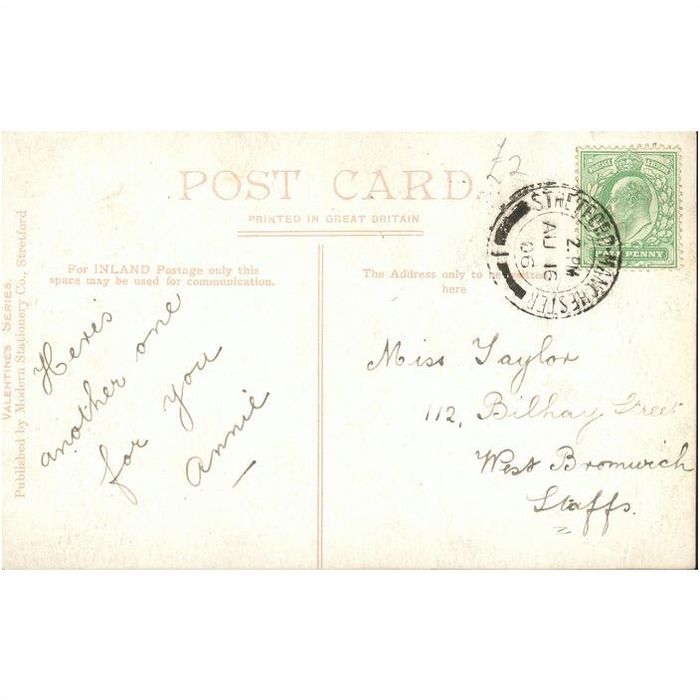 POST CARD
PRINTED IN GREAT BRITAIN
£2
STRETFORD · MANCHESTER
2 PM
AU 16
06
PENNY
For INLAND Postage only this
space may be used for communication.
The Address only to be
here
VALENTINE'S SERIES.
Published by Modern Stationery Co., Stretford
Here's
another one
for you
Annie
Miss Taylor
112, Bilhay Street
West Bromwich
Staffs.